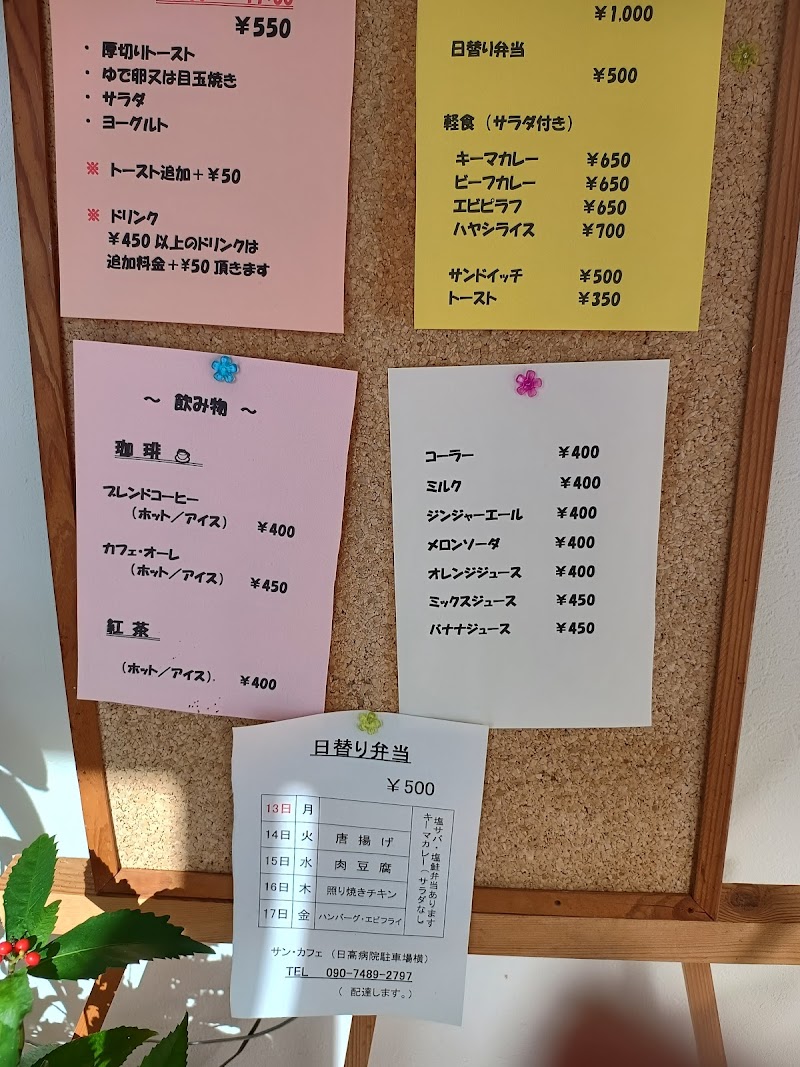 ¥550
・ 厚切りトースト
・ ゆで卵又は目玉焼き
・ サラダ
・ ヨーグルト
※ トースト追加＋¥50
※ ドリンク
¥450 以上のドリンクは
追加料金＋¥50 頂きます
¥1,000
日替り弁当
¥500
軽食（サラダ付き）
キーマカレー ¥650
ビーフカレー ¥650
エビピラフ ¥650
ハヤシライス ¥700
サンドイッチ ¥500
トースト ¥350
～ 飲み物 ～
珈琲
ブレンドコーヒー
（ホット／アイス） ¥400
カフェ・オーレ
（ホット／アイス） ¥450
紅茶
（ホット／アイス） ¥400
コーラー ¥400
ミルク ¥400
ジンジャーエール ¥400
メロンソーダ ¥400
オレンジジュース ¥400
ミックスジュース ¥450
バナナジュース ¥450
日替り弁当
¥500
13日 月
14日 火 唐揚げ
15日 水 肉豆腐
16日 木 照り焼きチキン
17日 金 ハンバーグ・エビフライ
塩サバ・塩鮭弁当あります
キーマカレー（サラダなし
サン・カフェ（日高病院駐車場横）
TEL 090-7489-2797
（ 配達します。）